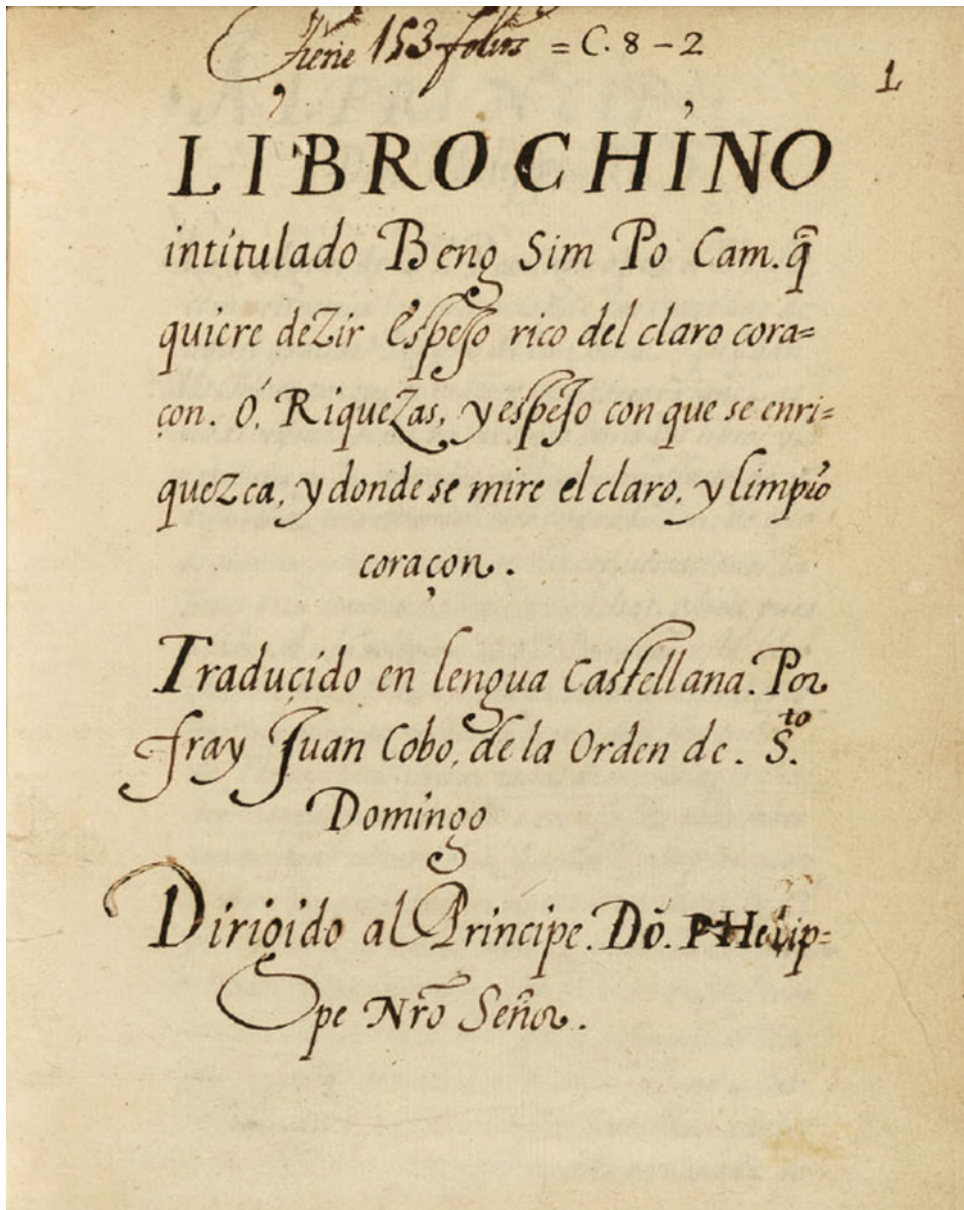 Tiene 153 folios = C. 8 - 2
1
LIBRO CHINO
intitulado Beng Sim Po Cam. q̃
quiere deZir Espejo rico del claro cora=
çon. Ó, RiqueZas, y espejo con que se enri=
queZca, y donde se mire el claro, y limpio
coraçon.
Traducido en lengua Castellana. Por
fray Juan Cobo, de la Orden de. S.to
Domingo
Dirigido al Principe. Dõ. PHelip=
pe Nrõ Señor.